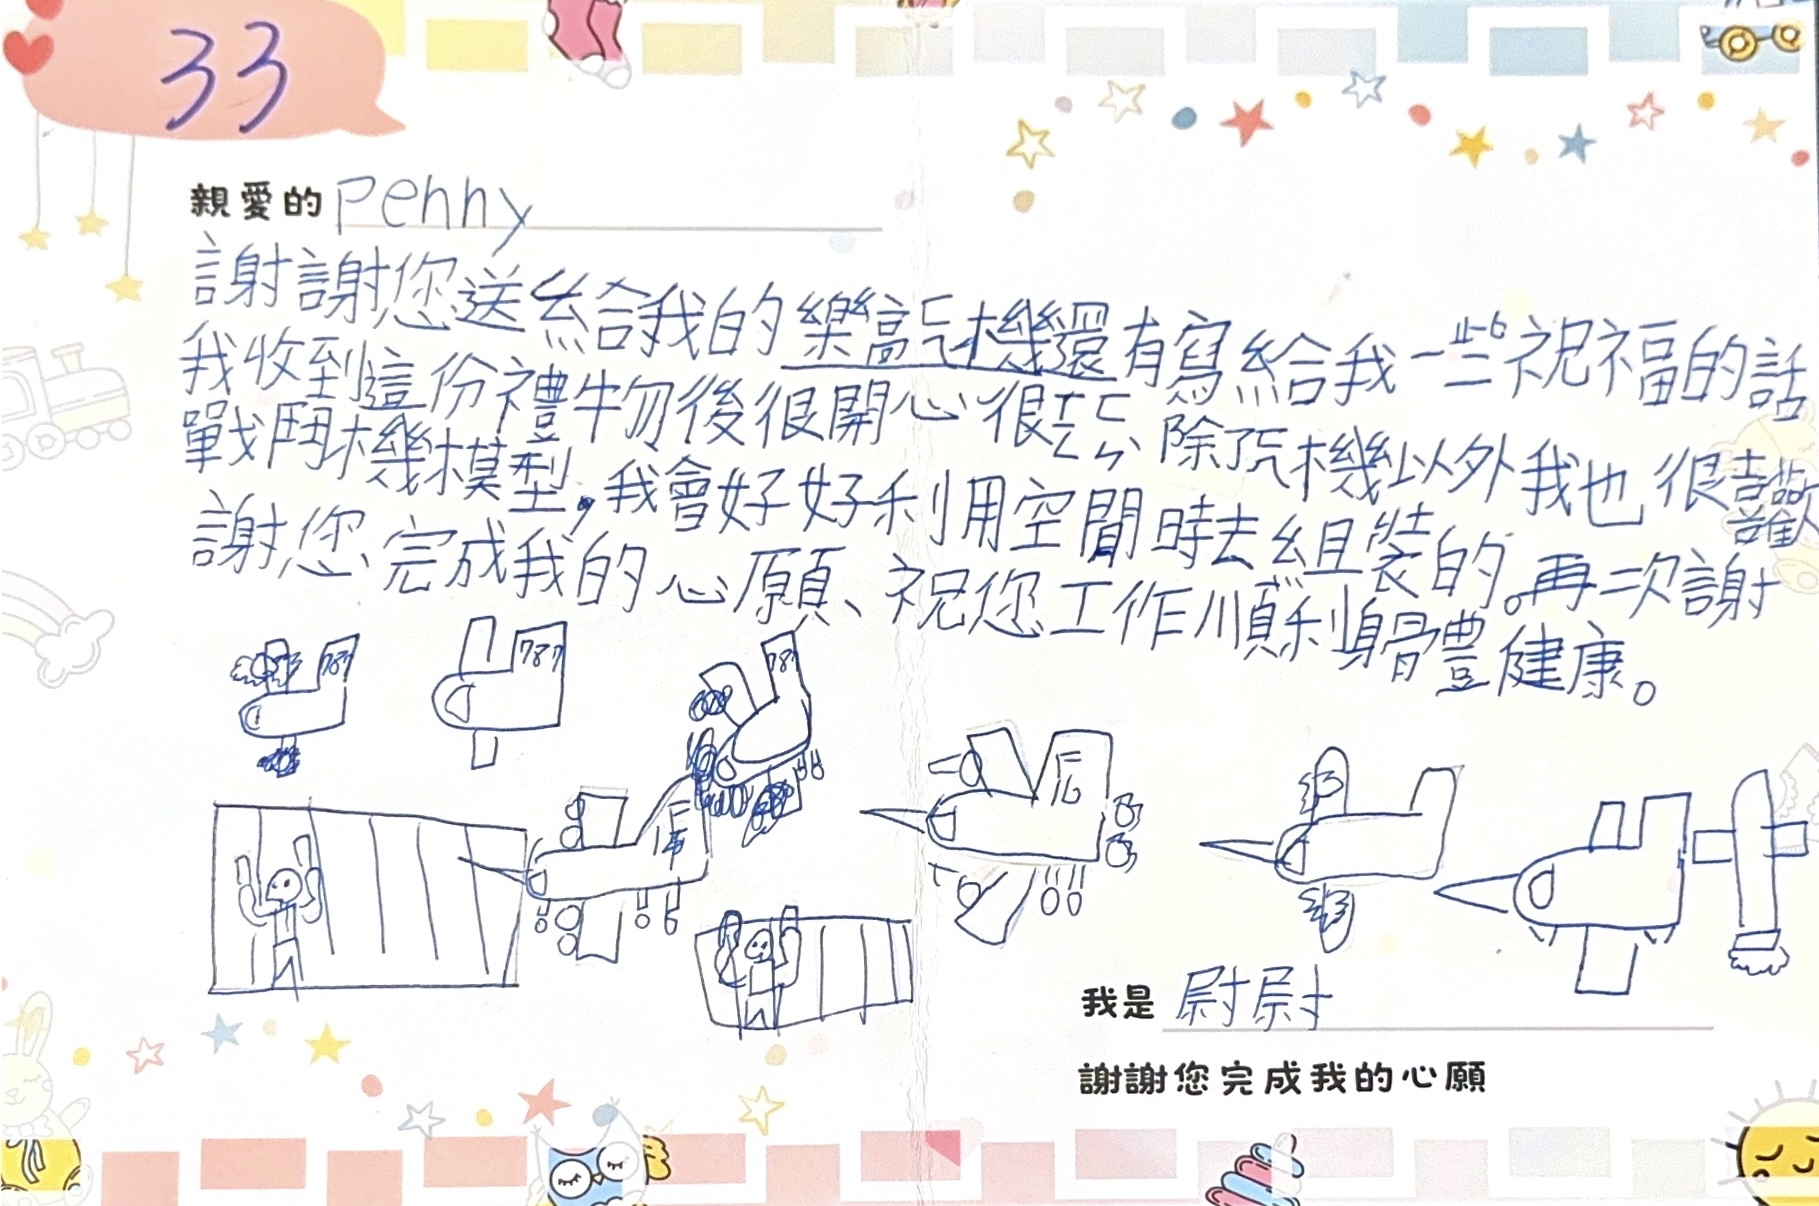 33
親愛的 Penny
謝謝您送給我的樂高飛機還有寫給我一些祝福的話
我收到這份禮物後很開心很 除飛機以外我也很喜歡
戰鬥機模型,我會好好利用空閒時去組裝的。再次謝
謝您完成我的心願、祝您工作順利身體健康。
787
787
787
我是 尉尉
謝謝您完成我的心願